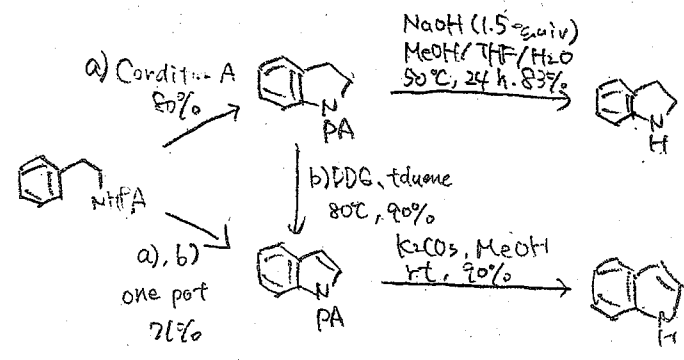 a) Condition A
80%
N
PA
NaOH (1.5 equiv)
MeOH/THF/H2O
50°C, 24 h. 83%
N
H
NHPA
b) DDQ, toluene
80°C, 90%
a), b)
one pot
71%
N
PA
K2CO3, MeOH
rt, 90%
N
H